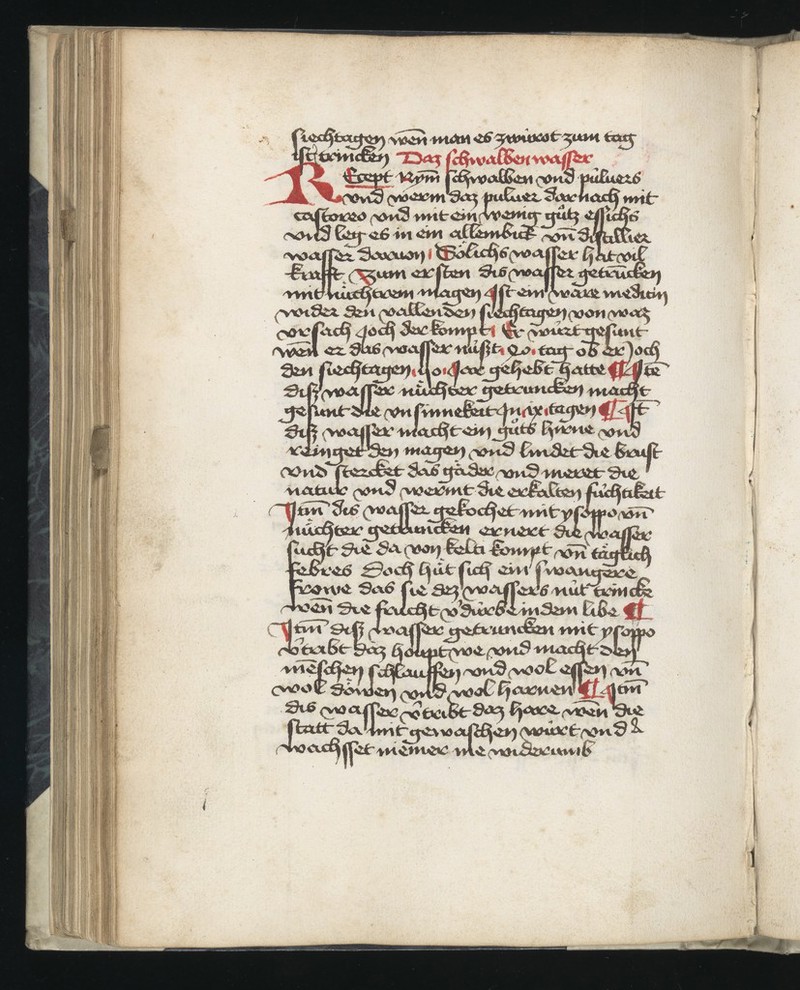 siechtagen wen̄ man es zwürot zum tag
ist trincken Daz schwalben wasser
REcept Nym̄ schwalben vnd puluers
vnd werm daz puluer dar nach mit
castoreo vnd mit ein wenig gůtz essichs
vnd leg es in ein allembick vn̄ distillier
wasser daruon Sölichs wasser hat vil
krafft Zum ersten dis wasser getruncken
mit nüchtrem magen Ist ein ware medicin
wider den vallenden siechtagen von waz
vrsach joch der kompt Er würt gesunt
wen̄ er das wasser nüßt xo tag ob er joch
den siechtagen xo Jar gehebt hatte ¶ Itē
diß wasser nüchter getruncken macht
gesunt die vnsinnekeit In ix tagen ¶ It̄
diß wasser macht ein gůts hirne vnd
reinget den magen vnd lindet die brust
vnd stercket das gäder vnd meret die
natur vnd wermt die erkalten füchtikeit
Itm̄ dis wasser gekochet mit ysoppo vn̄
nüchter getruncken ernert die wasser
sucht die da von kelti kompt vn̄ täglich
febres Doch hüt sich ein swangere
frowe das sie dez wassers nüt trincke
wen̄ die frucht v̉dürbe in dem libe ¶
Itm̄ diß wasser getruncken mit ysoppo
v̉tribt daz houptwe vnd macht den
mēschen schlauffen vnd wol essen vn̄
wol döwen vnd wol harnen ¶ Itm̄
dis wasser v̉tribt daz hare wen̄ die
statt da mit gewaschen würt vnd
wachsset niemer me widerumb